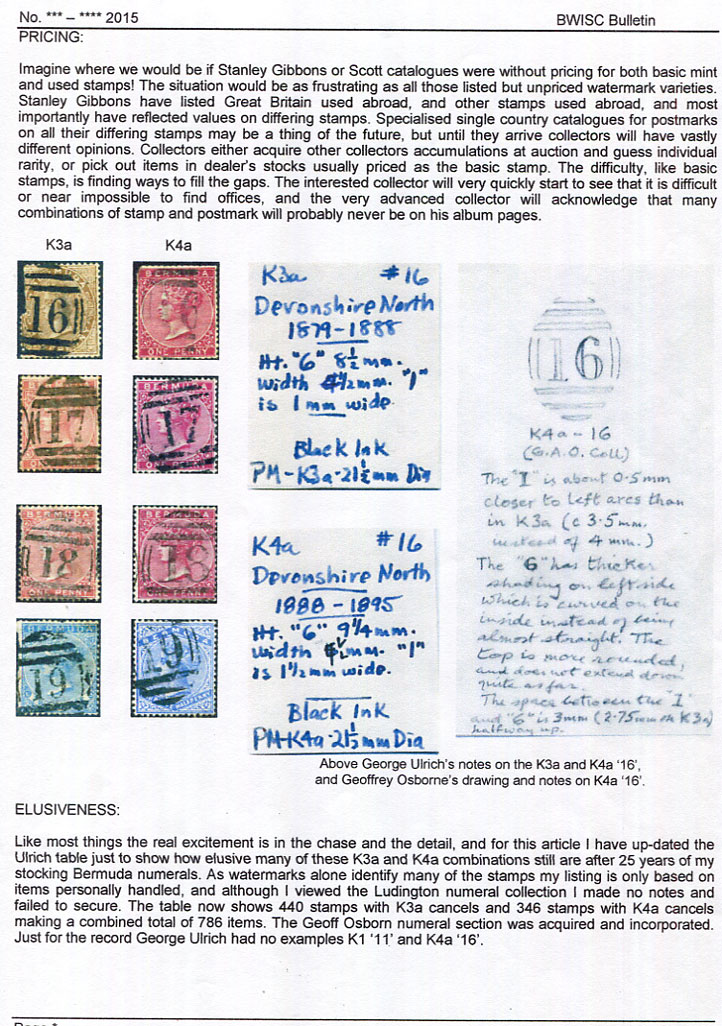 No. *** – **** 2015
BWISC Bulletin
PRICING:
Imagine where we would be if Stanley Gibbons or Scott catalogues were without pricing for both basic mint
and used stamps! The situation would be as frustrating as all those listed but unpriced watermark varieties.
Stanley Gibbons have listed Great Britain used abroad, and other stamps used abroad, and most
importantly have reflected values on differing stamps. Specialised single country catalogues for postmarks
on all their differing stamps may be a thing of the future, but until they arrive collectors will have vastly
different opinions. Collectors either acquire other collectors accumulations at auction and guess individual
rarity, or pick out items in dealer's stocks usually priced as the basic stamp. The difficulty, like basic
stamps, is finding ways to fill the gaps. The interested collector will very quickly start to see that it is difficult
or near impossible to find offices, and the very advanced collector will acknowledge that many
combinations of stamp and postmark will probably never be on his album pages.
K3a
K4a
16
BERMUDA
ONE PENNY
17
BERMU
17
18
ONE PENNY
18
19
19
K3a #16
Devonshire North
1879-1888
Ht. "6" 8½mm.
Width 4½mm. "1"
is 1mm wide
Black Ink
PM-K3a-21½mm Dia
K4a #16
Devonshire North
1888-1895
Ht. "6" 9¼mm.
Width ½mm. "1"
is 1½mm wide.
Black Ink
PM-K4a-21½mm Dia
16
K4a - 16
(G.A.O. Coll)
The "I" is about 0.5mm
closer to left arcs than
in K3a (c 3.5mm.
instead of 4mm.)
The "6" has thicker
shading on left side
which is curved on the
inside instead of being
almost straight. The
top is more rounded,
and does not extend down
quite as far.
The space between the "I"
and "6" is 3mm (2.75mm on K3a)
halfway up.
Above George Ulrich's notes on the K3a and K4a '16',
and Geoffrey Osborne's drawing and notes on K4a '16'.
ELUSIVENESS:
Like most things the real excitement is in the chase and the detail, and for this article I have up-dated the
Ulrich table just to show how elusive many of these K3a and K4a combinations still are after 25 years of my
stocking Bermuda numerals. As watermarks alone identify many of the stamps my listing is only based on
items personally handled, and although I viewed the Ludington numeral collection I made no notes and
failed to secure. The table now shows 440 stamps with K3a cancels and 346 stamps with K4a cancels
making a combined total of 786 items. The Geoff Osborn numeral section was acquired and incorporated.
Just for the record George Ulrich had no examples K1 '11' and K4a '16'.